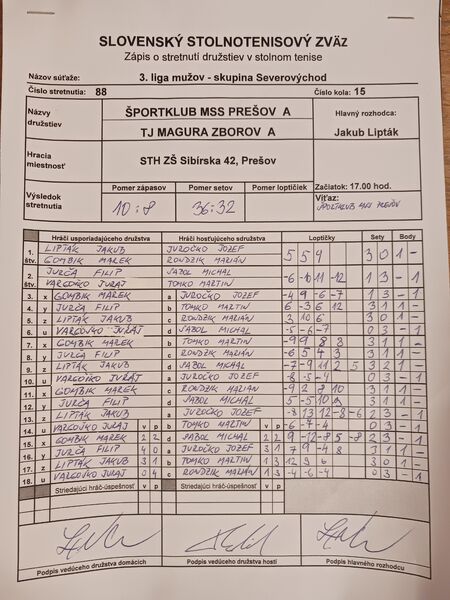 SLOVENSKÝ STOLNOTENISOVÝ ZVÄZ
Zápis o stretnutí družstiev v stolnom tenise
Názov súťaže: 3. liga mužov - skupina Severovýchod
Číslo stretnutia: 88 Číslo kola: 15
Názvy družstiev ŠPORTKLUB MSS PREŠOV A Hlavný rozhodca:
TJ MAGURA ZBOROV A Jakub Lipták
Hracia miestnosť STH ZŠ Sibírska 42, Prešov
Pomer zápasov Pomer setov Pomer loptičiek Začiatok: 17.00 hod.
Výsledok stretnutia 10:8 36:32 Víťaz: ŠPORTKLUB MSS PREŠOV
Hráči usporiadajúceho družstva Hráči hosťujúceho sdružstva Loptičky Sety Body
1. štv. LIPTÁK JAKUB JUROČKO JOZEF 5 5 9 3 0 1 -
GOMBIK MAREK RONDZIK MARIÁN
2. štv. JURČA FILIP JAŠOL MICHAL -6 -8 11 -12 1 3 - 1
VARGOVKO JURAJ TOMKO MARTIN
3. x GOMBIK MAREK a JUROČKO JOZEF -4 9 -6 -7 1 3 - 1
4. y JURČA FILIP b TOMKO MARTIN 6 -3 6 12 3 1 1 -
5. z LIPTÁK JAKUB c RONDZIK MARIÁN 3 10 6 3 0 1 -
6. u VARGOVKO JURAJ d JAŠOL MICHAL -5 -6 -7 0 3 - 1
7. x GOMBIK MAREK b TOMKO MARTIN -9 9 8 8 3 1 1 -
8. y JURČA FILIP c RONDZIK MARIÁN -6 5 4 3 3 1 1 -
9. z LIPTÁK JAKUB d JAŠOL MICHAL -7 -9 11 2 5 3 2 1 -
10. u VARGOVKO JURAJ a JUROČKO JOZEF -8 -5 -9 0 3 - 1
11. x GOMBIK MAREK c RONDZIK MARIÁN -9 2 8 10 3 1 1 -
12. y JURČA FILIP d JAŠOL MICHAL 5 -5 10 3 1 1 -
13. z LIPTÁK JAKUB a JUROČKO JOZEF -8 13 12 -8 -6 2 3 - 1
14. u VARGOVKO JURAJ v p b TOMKO MARTIN v p -6 -7 -4 0 3 - 1
15. x GOMBIK MAREK 2 2 d JAŠOL MICHAL 2 2 9 -12 -8 5 -8 2 3 - 1
16. y JURČA FILIP 4 0 a JUROČKO JOZEF 3 1 7 9 -4 8 3 1 1 -
17. z LIPTÁK JAKUB 3 1 b TOMKO MARTIN 1 3 12 3 6 3 0 1 -
18. u VARGOVKO JURAJ 0 4 c RONDZIK MARIÁN 1 3 -4 -6 -4 0 3 - 1
Striedajúci hráč-úspešnosť v p Striedajúci hráč-úspešnosť v p
Podpis vedúceho družstva domácich Podpis vedúceho družstva hostí Podpis hlavného rozhodcu